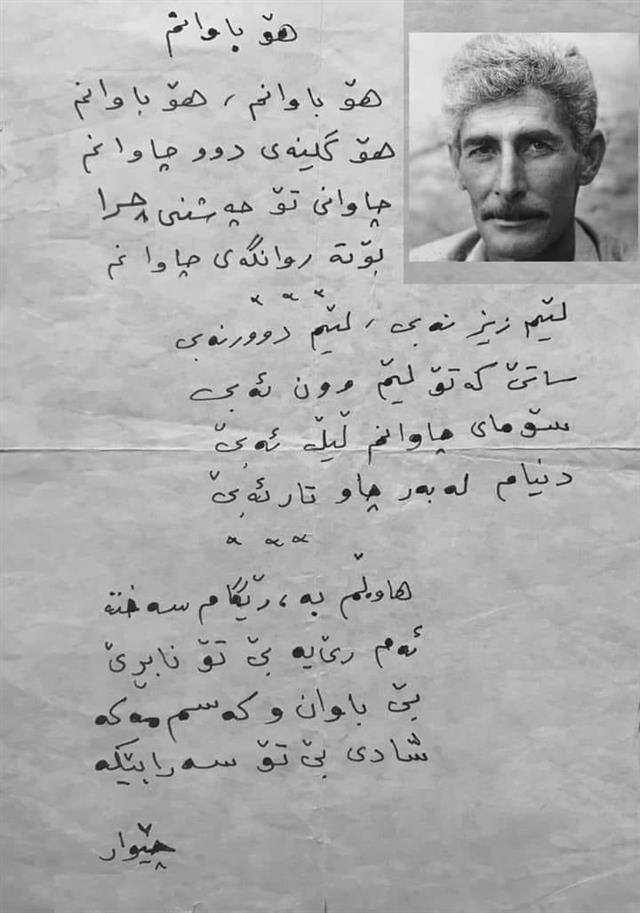 هۆ باوانم
هۆ باوانم، هۆ باوانم
هۆ گلینەی دوو چاوانم
چاوانی تۆ چەشنی چرا
بۆتە روانگەی چاوانم
لێم زیز نەبی، لێم دوورنەبی
ساتێ کەتۆ لێم وون ئەبی
سۆمای چاوانم لێڵ ئەبێ
دنیام لەبەر چاو تار ئەبێ
هاوڕێم بە، رێگام سەختە
ئەم رێیە بێ تۆ نابڕێ
بێ باوان و کەسم مەکە
شادی بێ تۆ سەرابێکە